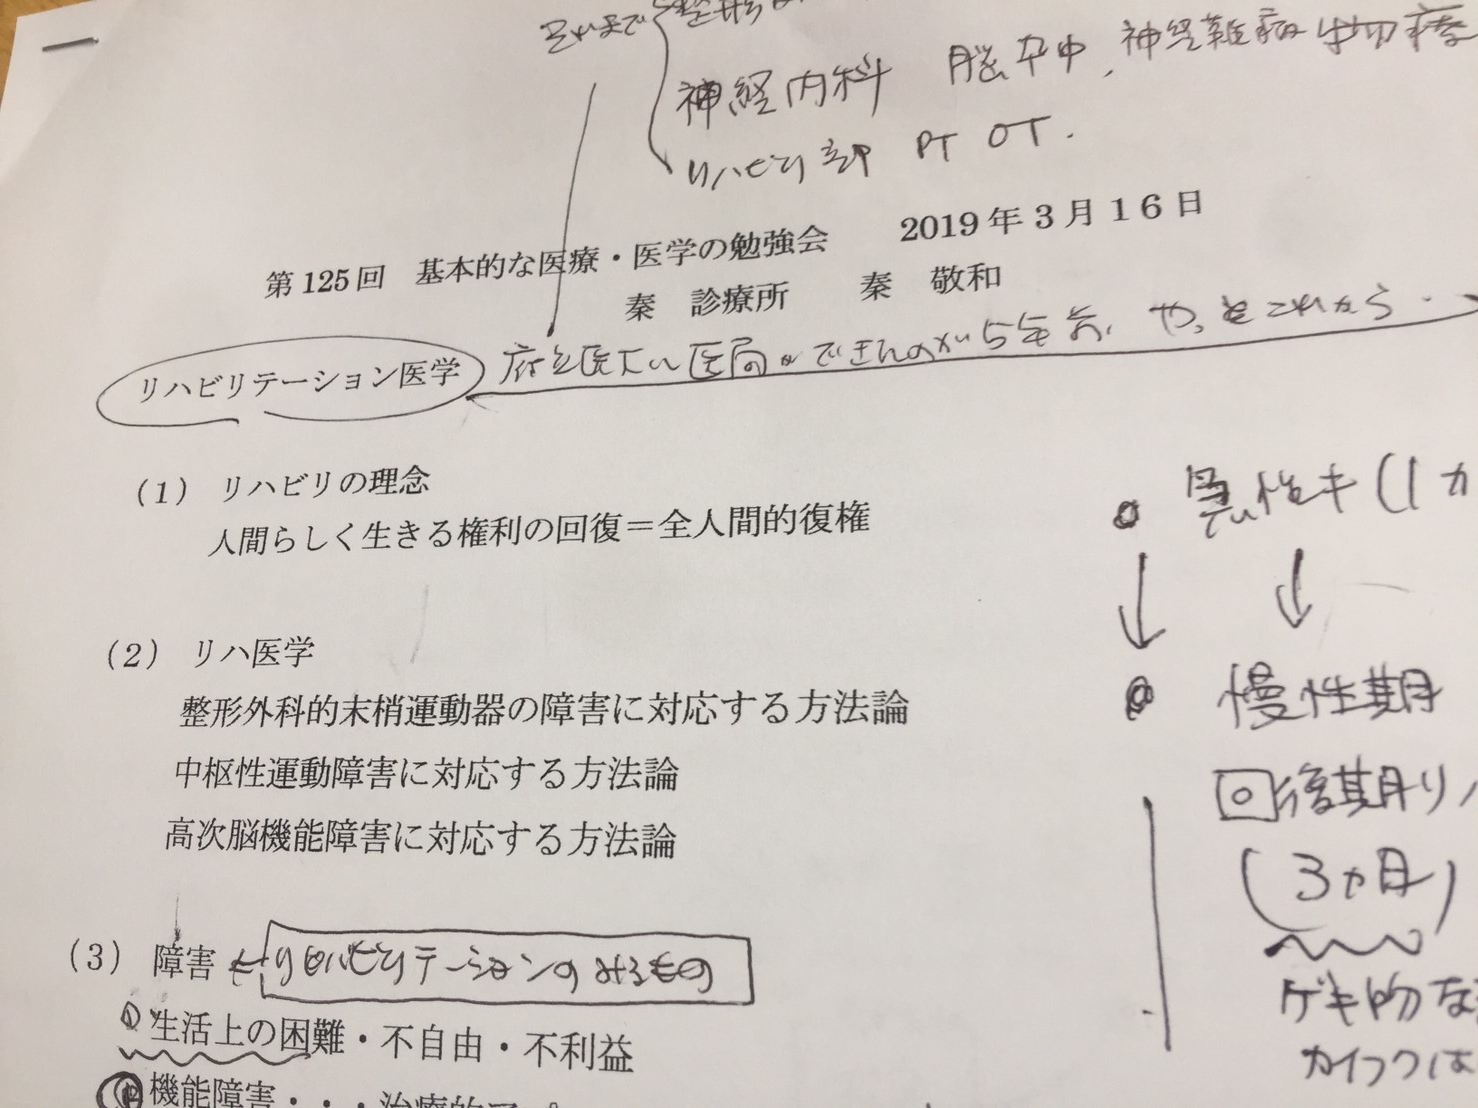 それまで 整形
神経内科 脳卒中、神経難病
リハビリ部 PT OT.
第125回 基本的な医療・医学の勉強会 2019年3月16日
秦 診療所 秦 敬和
リハビリテーション医学 府立医大に医局ができたのが5年前、やっとこれから‥
(1) リハビリの理念
人間らしく生きる権利の回復＝全人間的復権
急性キ(1カ
(2) リハ医学
整形外科的末梢運動器の障害に対応する方法論
慢性期
中枢性運動障害に対応する方法論
回復期リハ
高次脳機能障害に対応する方法論
(3ヵ月)
(3) 障害 ←リハビリテーションのみるもの
ゲキ的な
① 生活上の困難・不自由・不利益
カイフクは
機能障害・・・治療的アプ